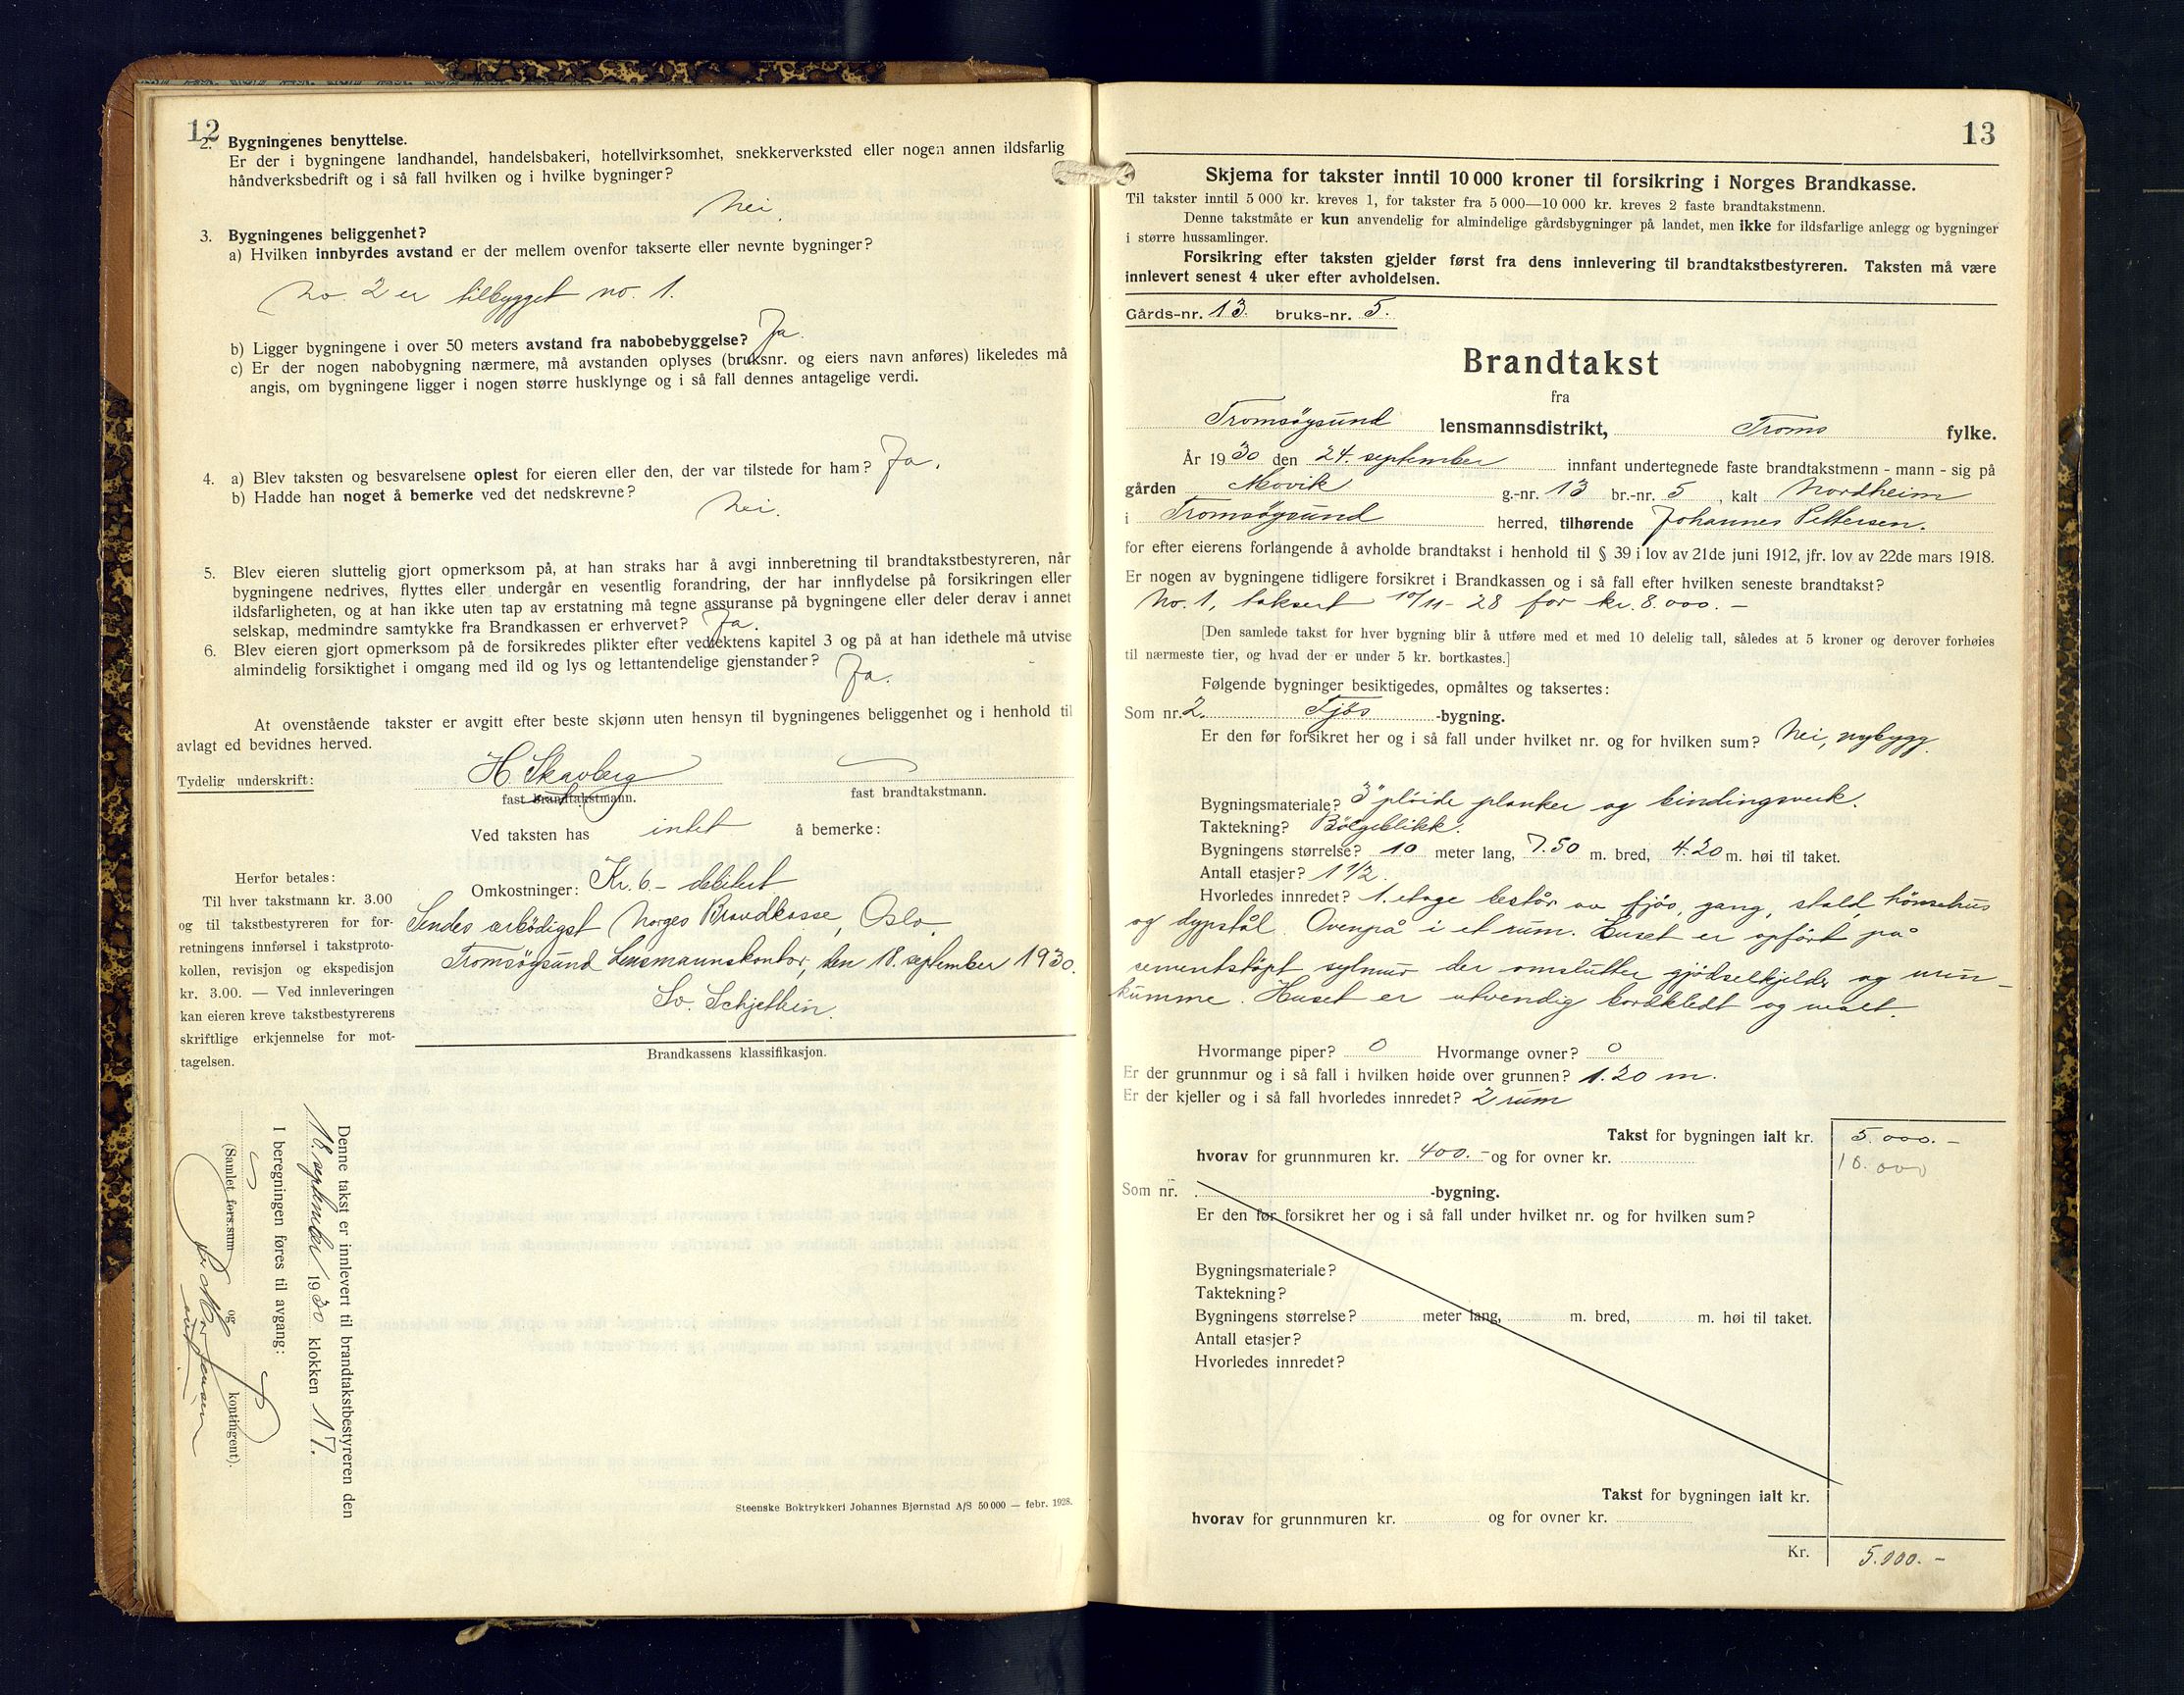 12
2. Bygningenes benyttelse.
Er der i bygningene landhandel, handelsbakeri, hotellvirksomhet, snekkerverksted eller nogen annen ildsfarlig
håndverksbedrift og i så fall hvilken og i hvilke bygninger?
Nei.
3. Bygningenes beliggenhet?
a) Hvilken innbyrdes avstand er der mellem ovenfor takserte eller nevnte bygninger?
No. 2 er tilbygget no. 1.
b) Ligger bygningene i over 50 meters avstand fra nabobebyggelse? Ja.
c) Er der nogen nabobygning nærmere, må avstanden oplyses (bruksnr. og eiers navn anføres) likeledes må
angis, om bygningene ligger i nogen større husklynge og i så fall dennes antagelige verdi.
4. a) Blev taksten og besvarelsene oplest for eieren eller den, der var tilstede for ham? Ja.
b) Hadde han noget å bemerke ved det nedskrevne?
Nei.
5. Blev eieren sluttelig gjort opmerksom på, at han straks har å avgi innberetning til brandtakstbestyreren, når
bygningene nedrives, flyttes eller undergår en vesentlig forandring, der har innflydelse på forsikringen eller
ildsfarligheten, og at han ikke uten tap av erstatning må tegne assuranse på bygningene eller deler derav i annet
selskap, medmindre samtykke fra Brandkassen er erhvervet? Ja.
6. Blev eieren gjort opmerksom på de forsikredes plikter efter vedtektens kapitel 3 og på at han idethele må utvise
almindelig forsiktighet i omgang med ild og lys og lettantendelige gjenstander? Ja.
At ovenstående takster er avgitt efter beste skjønn uten hensyn til bygningenes beliggenhet og i henhold til
avlagt ed bevidnes herved.
Tydelig underskrift: H Skavberg
fast brandtakstmann. fast brandtakstmann.
Ved taksten has intet å bemerke:
Omkostninger: Kr. 6 - debitert
Sendes ærbødigst Norges Brandkasse, Oslo.
Tromsøysund Lensmannskontor, den 18. september 1930.
Sv. Schjelbein.
Brandkassens klassifikasjon.
Herfor betales:
Til hver takstmann kr. 3.00
og til takstbestyreren for for-
retningens innførsel i takstproto-
kollen, revisjon og ekspedisjon
kr. 3.00. — Ved innleveringen
kan eieren kreve takstbestyrerens
skriftlige erkjennelse for mot-
tagelsen.
Denne takst er innlevert til brandtakstbestyreren den
18. september 1930 klokken 17.
I beregningen føres til avgang:
(Samlet fors.sum og kontingent).
Steenske Boktrykkeri Johannes Bjørnstad A/S 50 000 — febr. 1928.
13
Skjema for takster inntil 10 000 kroner til forsikring i Norges Brandkasse.
Til takster inntil 5 000 kr. kreves 1, for takster fra 5 000—10 000 kr. kreves 2 faste brandtakstmenn.
Denne takstmåte er kun anvendelig for almindelige gårdsbygninger på landet, men ikke for ildsfarlige anlegg og bygninger
i større hussamlinger.
Forsikring efter taksten gjelder først fra dens innlevering til brandtakstbestyreren. Taksten må være
innlevert senest 4 uker efter avholdelsen.
Gårds-nr. 13. bruks-nr. 5.
Brandtakst
fra
Tromsöysund lensmannsdistrikt, Troms fylke.
År 1930 den 24. september innfant undertegnede faste brandtakstmenn - mann - sig på
gården Movik g.-nr. 13 br.-nr. 5, kalt Nordheim
i Tromsöysund herred, tilhørende Johannes Pettersen.
for efter eierens forlangende å avholde brandtakst i henhold til § 39 i lov av 21de juni 1912, jfr. lov av 22de mars 1918.
Er nogen av bygningene tidligere forsikret i Brandkassen og i så fall efter hvilken seneste brandtakst?
No. 1, taksert 10/11-28 for kr. 8.000.-
[Den samlede takst for hver bygning blir å utføre med et med 10 delelig tall, således at 5 kroner og derover forhøies
til nærmeste tier, og hvad der er under 5 kr. bortkastes.]
Følgende bygninger besiktigedes, opmåltes og taksertes:
Som nr. 2. Fjös -bygning.
Er den før forsikret her og i så fall under hvilket nr. og for hvilken sum? Nei, nybygg.
Bygningsmateriale? 3" plöide planker og bindingverk.
Taktekning? Bölgeblikk.
Bygningens størrelse? 10 meter lang, 7.50 m. bred, 4.20 m. høi til taket.
Antall etasjer? 1 1/2.
Hvorledes innredet? 1. etage består av fjös, gang, stald, hönsehus
og dypstål. Ovenpå i et rum. Huset er opfört på
sementstöpt sylmur der omslutter gjödselkjelder og urin-
kumme. Huset er utvendig bordkledt og malt.
Hvormange piper? 0 Hvormange ovner? 0
Er der grunnmur og i så fall i hvilken høide over grunnen? 1.20 m.
Er der kjeller og i så fall hvorledes innredet? 2 rum
Takst for bygningen ialt kr. 5.000.-
hvorav for grunnmuren kr. 400.- og for ovner kr.
10.000
Som nr. -bygning.
Er den før forsikret her og i så fall under hvilket nr. og for hvilken sum?
Bygningsmateriale?
Taktekning?
Bygningens størrelse? meter lang, m. bred, m. høi til taket.
Antall etasjer?
Hvorledes innredet?
Takst for bygningen ialt kr.
hvorav for grunnmuren kr. og for ovner kr.
Kr. 5.000.-